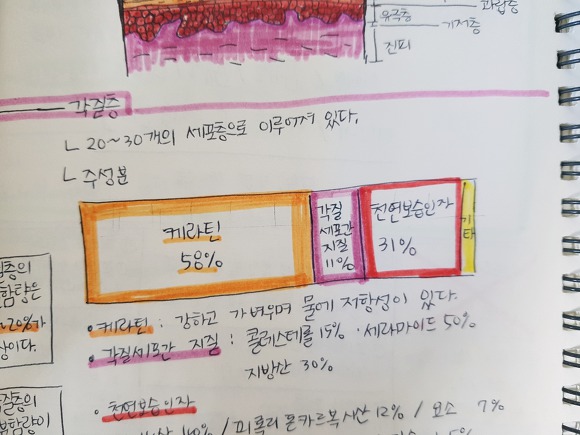 과립층
유극층
기저층
진피
각질층
ㄴ 20~30개의 세포층으로 이루어져 있다.
ㄴ 주성분
케라틴
58%
각질
세포간
지질
11%
천연보습인자
31%
기타
층의
함량은
~20%가
상이다.
• 케라틴 : 강하고 가벼우며 물에 저항성이 있다.
• 각질세포간 지질 : 콜레스테롤 15% · 세라마이드 50%
지방산 30%
각질층의
함량이
• 천연보습인자
40% / 피롤리돈카르복시산 12% / 요소 7%